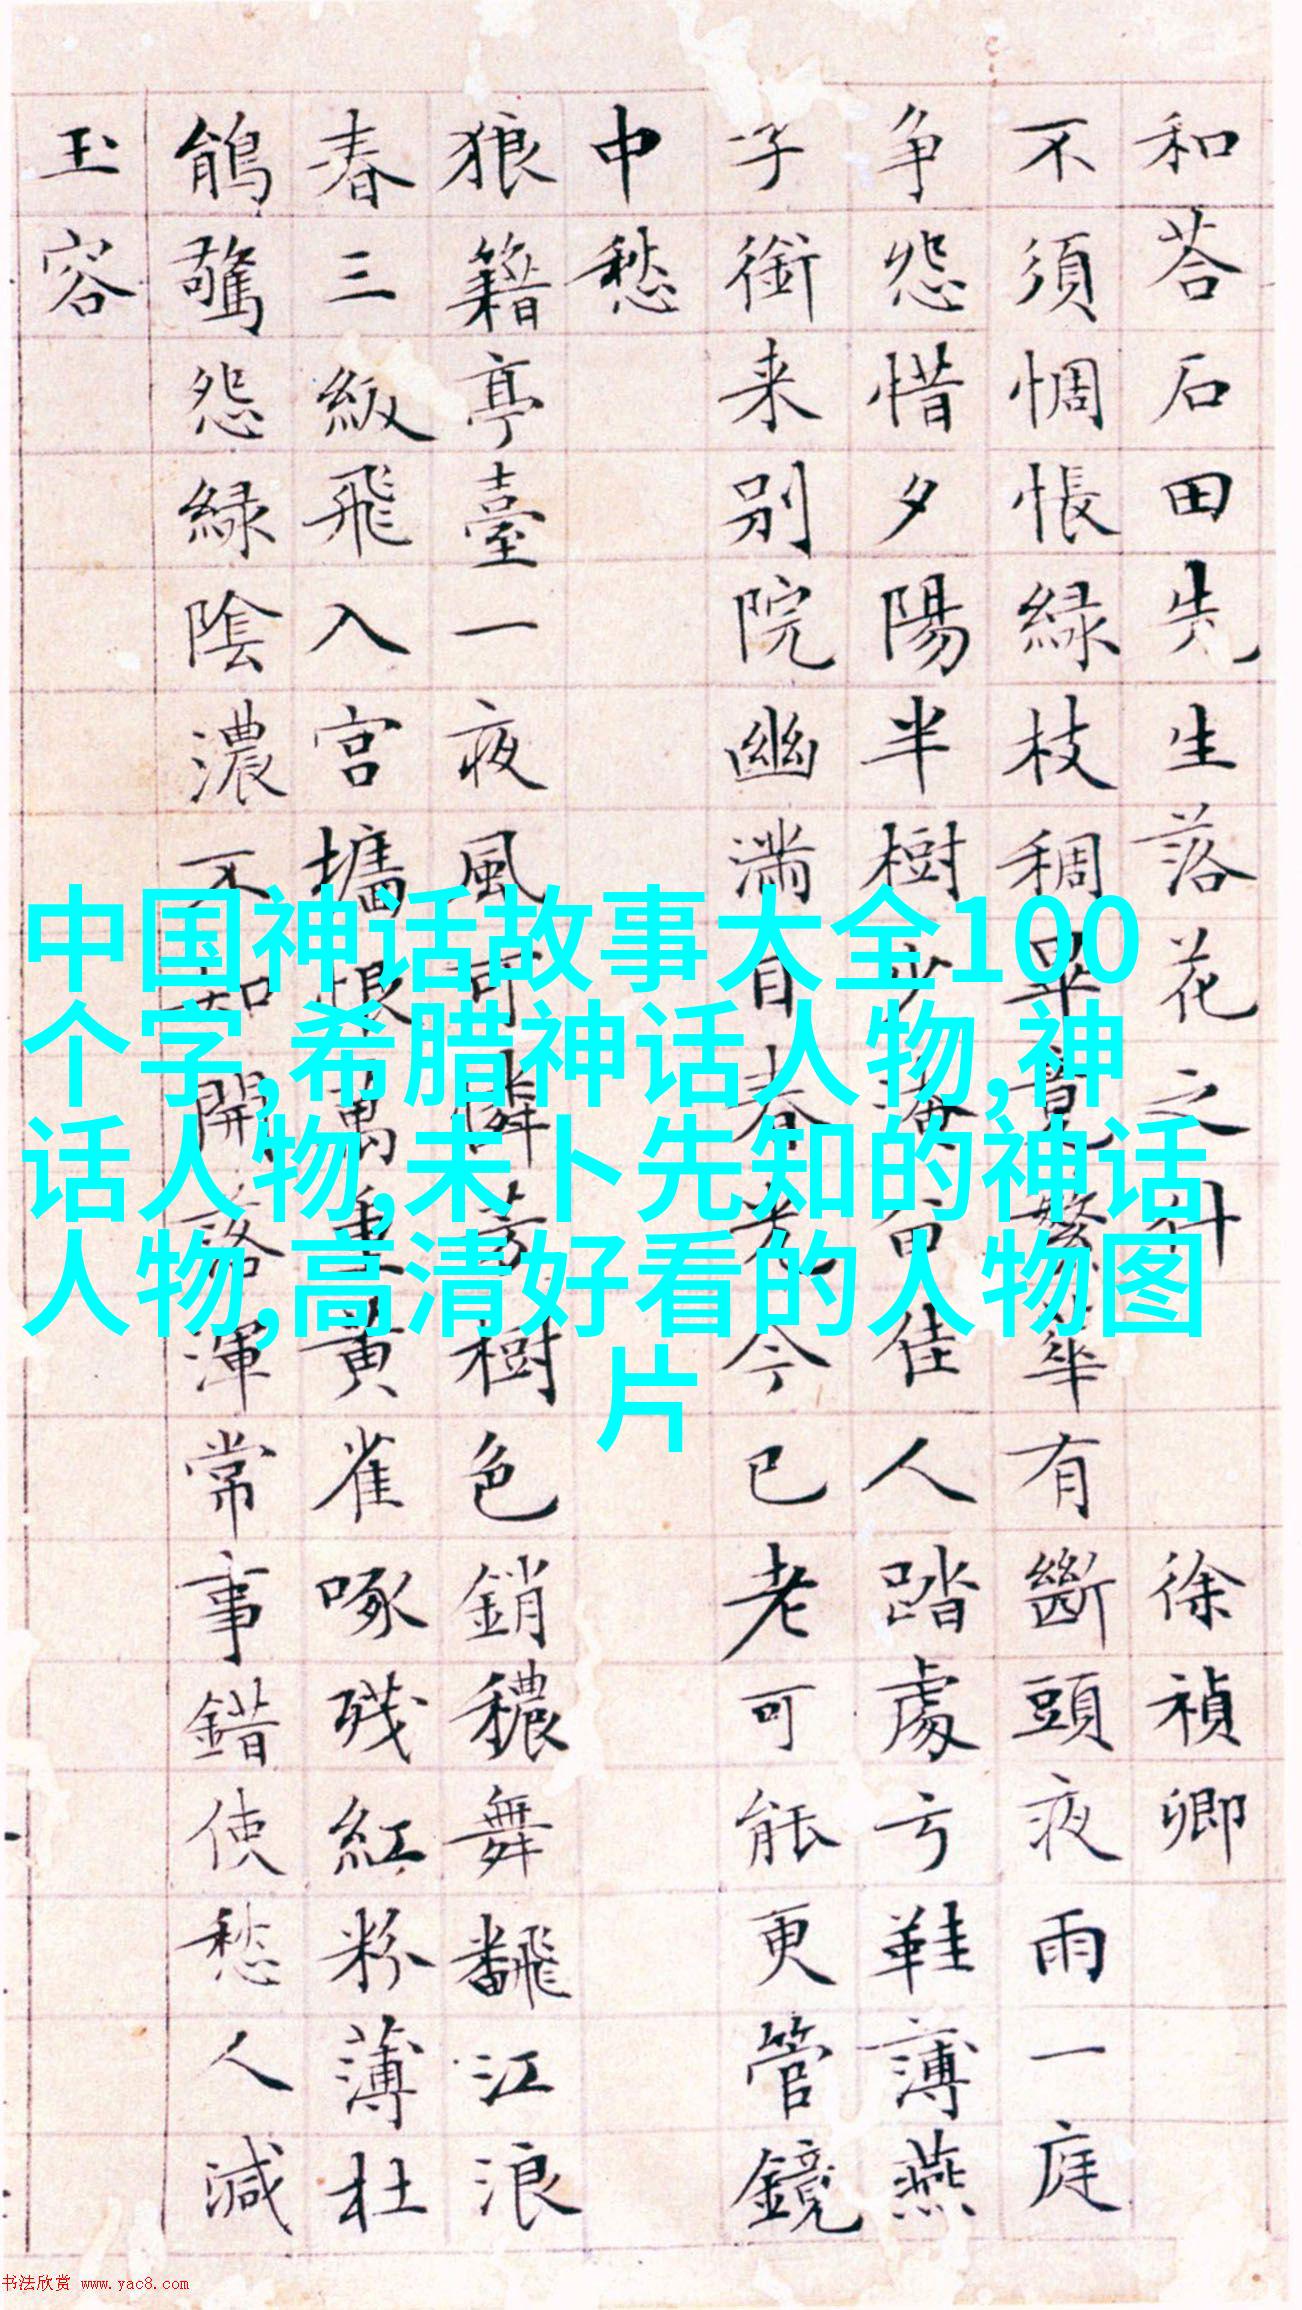 和荅石田先生落花之什 徐禎卿
不須惆悵緑枝稠畢竟繁華有斷頭夜雨一庭
争怨惜夕陽半樹少淹留佳人踏處亏鞋薄燕
子銜来别院幽满目春光今已老可能更管鏡
中愁
狼籍亭臺一夜風可憐芳樹色銷穠舞飜江浪
春三級飛入宫墻恨萬重黄雀啄残紅粉薄杜
鵑驚怨緑陰濃不知開落渾常事錯使愁人減
玉容
中国神话故事大全100
个字,希腊神话人物,神
话人物,未卜先知的神话
人物,高清好看的人物图
片
书法欣赏 www.yac8.com